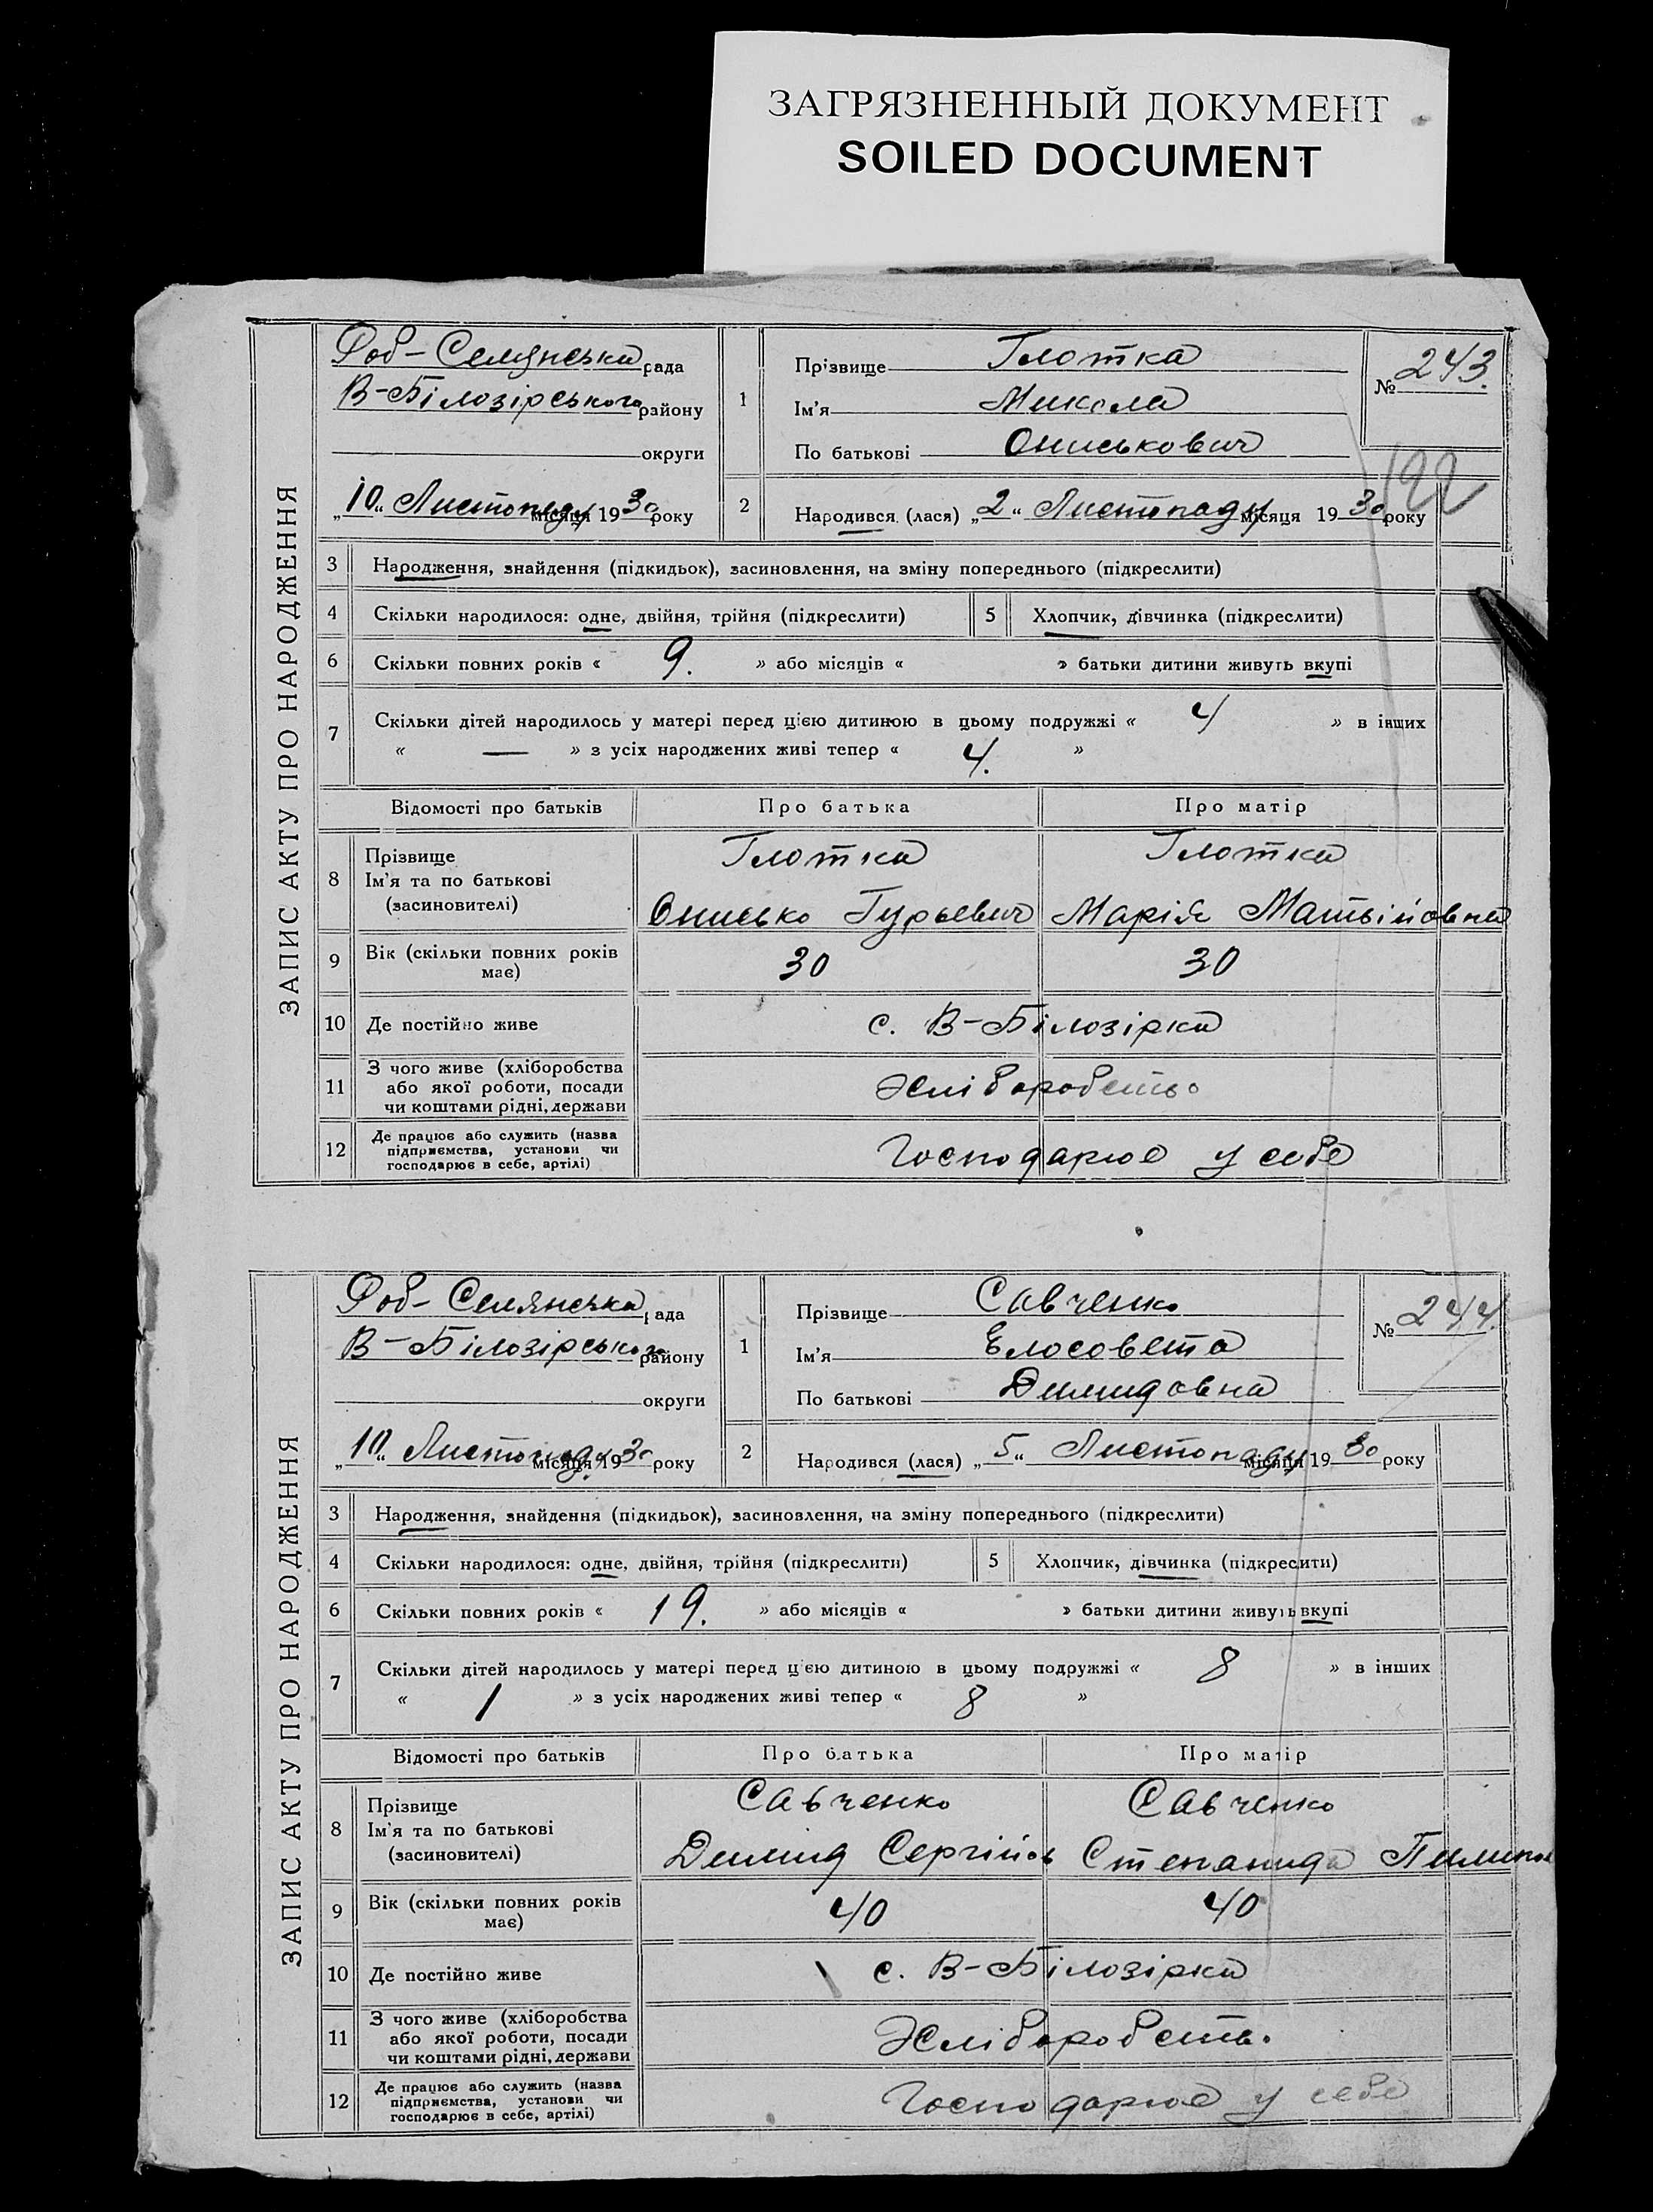 ЗАГРЯЗНЕННЫЙ ДОКУМЕНТ
SOILED DOCUMENT
ЗАПИС АКТУ ПРО НАРОДЖЕННЯ
Роб-Селянська рада
В-Білозірського району
округи
„10“ Листопаду місяця 1930 року
1
Прізвище Глотка
Ім'я Микола
По батькові Ониськович
№ 243.
122
2
Народився (лася) „2“ Листопаду місяця 1930 року
3 Народження, знайдення (підкидьок), засиновлення, на зміну попереднього (підкреслити)
4 Скільки народилося: одне, двійня, трійня (підкреслити) 5 Хлопчик, дівчинка (підкреслити)
6 Скільки повних років « 9. » або місяців « » батьки дитини живуть вкупі
7 Скільки дітей народилось у матері перед цією дитиною в цьому подружжі « 4 » в інших
« — » з усіх народжених живі тепер « 4. »
Відомості про батьків Про батька Про матір
8 Прізвище Глотка Глотка
Ім'я та по батькові
(засиновителі) Онисько Гурьевич Марія Матвійовна
9 Вік (скільки повних років має) 30 30
10 Де постійно живе с. В-Білозірка
11 З чого живе (хліборобства
або якої роботи, посади
чи коштами рідні, держави Хліборобство
12 Де працює або служить (назва
підприємства, установи чи
господарює в себе, артілі) Господарює у себе
ЗАПИС АКТУ ПРО НАРОДЖЕННЯ
Роб-Селянська рада
В-Білозірського району
округи
„10“ Листопаду місяця 1930 року
1
Прізвище Савченко
Ім'я Елосовета
По батькові Демидовна
№ 244.
2
Народився (лася) „5“ Листопаду місяця 1930 року
3 Народження, знайдення (підкидьок), засиновлення, на зміну попереднього (підкреслити)
4 Скільки народилося: одне, двійня, трійня (підкреслити) 5 Хлопчик, дівчинка (підкреслити)
6 Скільки повних років « 19. » або місяців « » батьки дитини живуть вкупі
7 Скільки дітей народилось у матері перед цією дитиною в цьому подружжі « 8 » в інших
« 1 » з усіх народжених живі тепер « 8 »
Відомості про батьків Про батька Про матір
8 Прізвище Савченко Савченко
Ім'я та по батькові
(засиновителі) Демид Сергійов Степанида Пилипов
9 Вік (скільки повних років має) 40 40
10 Де постійно живе с. В-Білозірка
11 З чого живе (хліборобства
або якої роботи, посади
чи коштами рідні, держави Хліборобств.
12 Де працює або служить (назва
підприємства, установи чи
господарює в себе, артілі) Господарює у себе